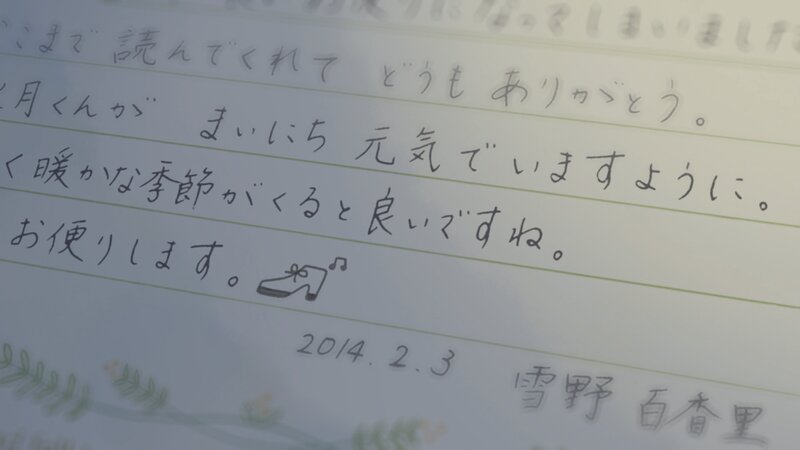 になってしまいました
ここまで 読んでくれて どうも ありがとう。
月くんが まいにち 元気でいますように。
く暖かな季節がくると良いですね。
お便りします。
2014.2.3 雪野 百香里